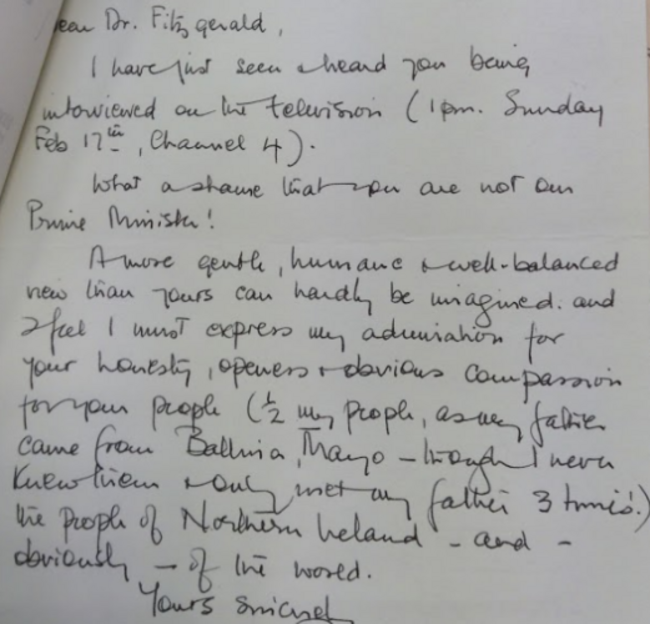 ear Dr. Fitzgerald,
I have just seen & heard you being
interviewed on the television (1pm. Sunday
Feb 17th, Channel 4).
What a shame that you are not our
Prime Minister!
A more gentle, humane & well-balanced
view than yours can hardly be imagined. and
I feel I must express my admiration for
your honesty, openess & obvious compassion
for your people (½ my people, as my father
came from Ballina, Mayo – though I never
knew them & only met my father 3 times!)
the people of Northern Ireland - and -
obviously – of the world.
Yours sincerely